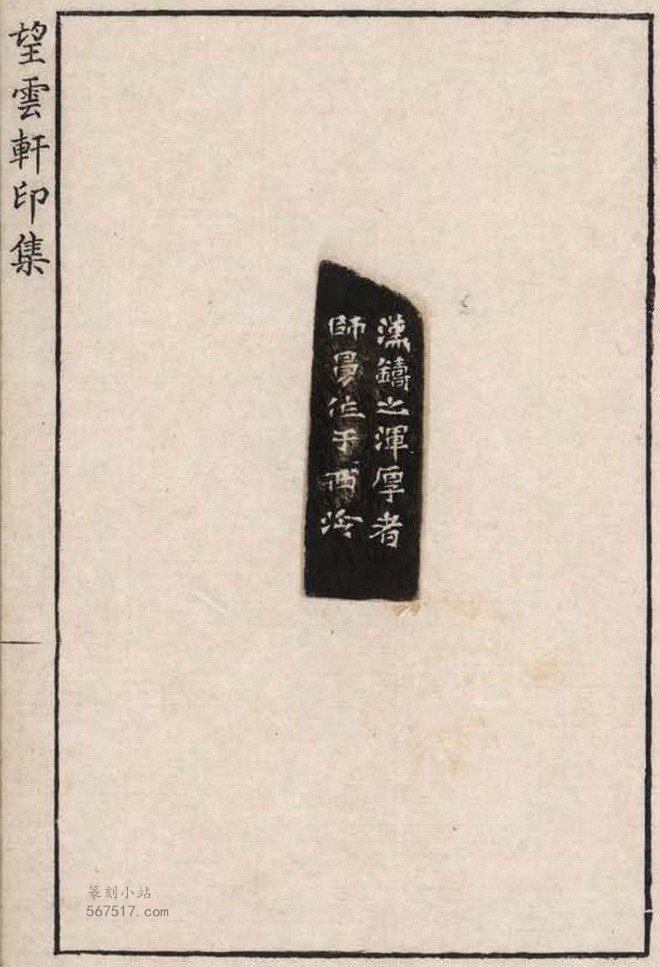 望雲軒印集
漢鑄之渾厚者
師曼作于西泠
篆刻小站
567517.com